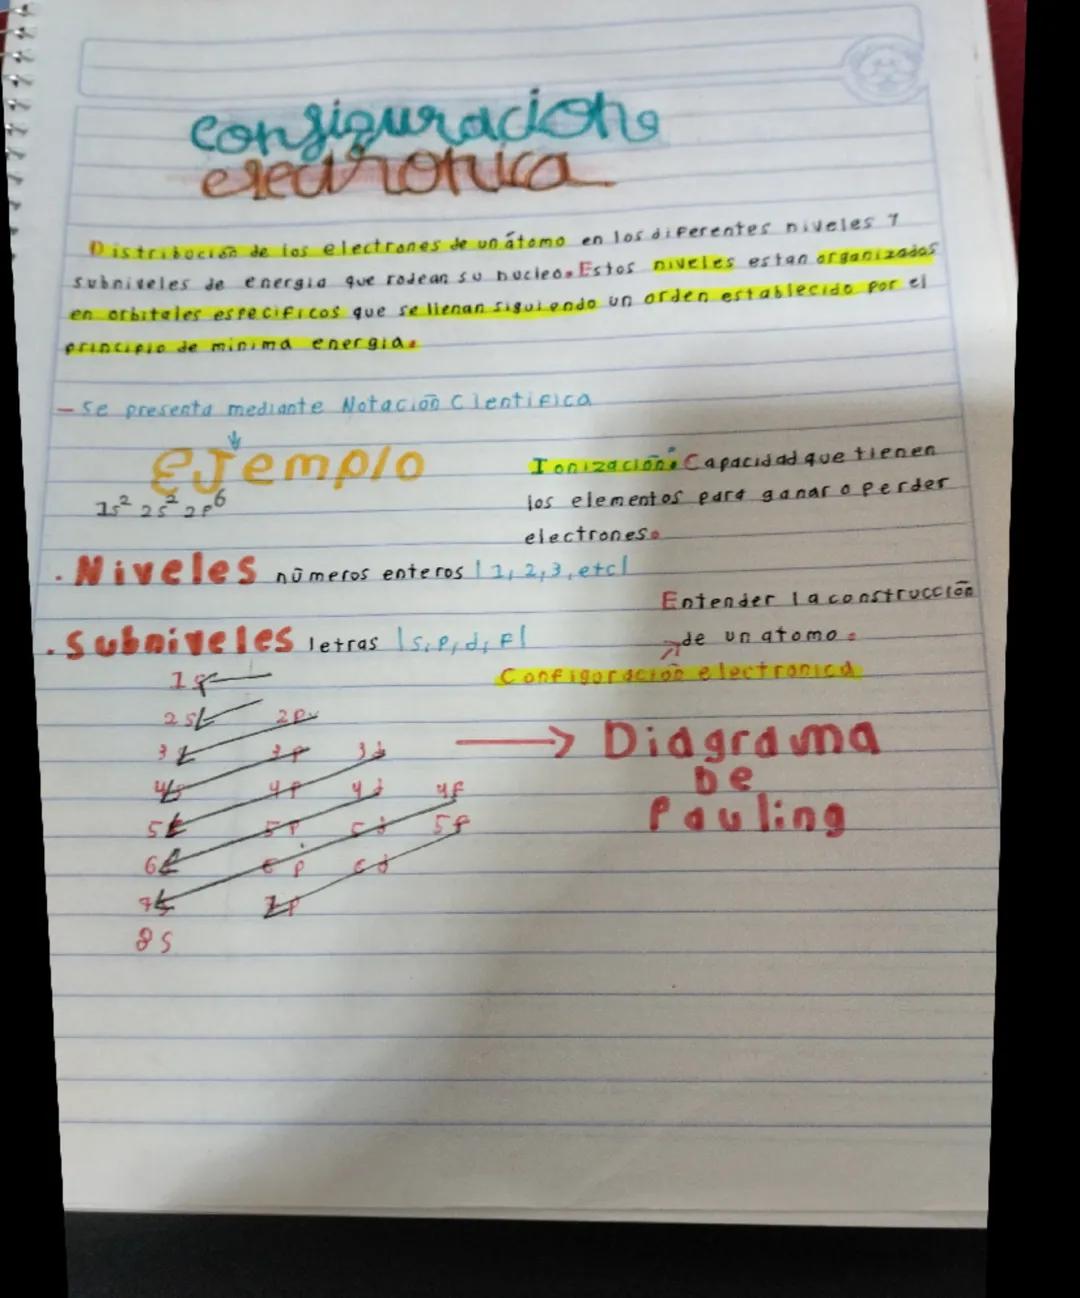 configuracion
electronica
Distribución de los electrones de un átomo en los diferentes niveles y
subniveles de energia que rodean su nucleo. Estos niveles estan organizados
en orbitales especificos que se llenan siguiendo un orden establecido por el
principio de minima energia.
- Se presenta mediante Notación Cientifica
Ejemplo
1s² 2s² 2p⁶
Ionización: Capacidad que tienen
los elementos para ganar o perder
electrones.
. Niveles números enteros |1, 2, 3, etc|
. Subniveles letras |s, p, d, f|
Entender la construcción
de un atomo.
Configuración electronica
1s
2s 2p
3s 3p 3d
4s 4p 4d 4f
5s 5p 5d 5f
6s 6p 6d
7s 7p
8s
Diagrama
De
Pauling